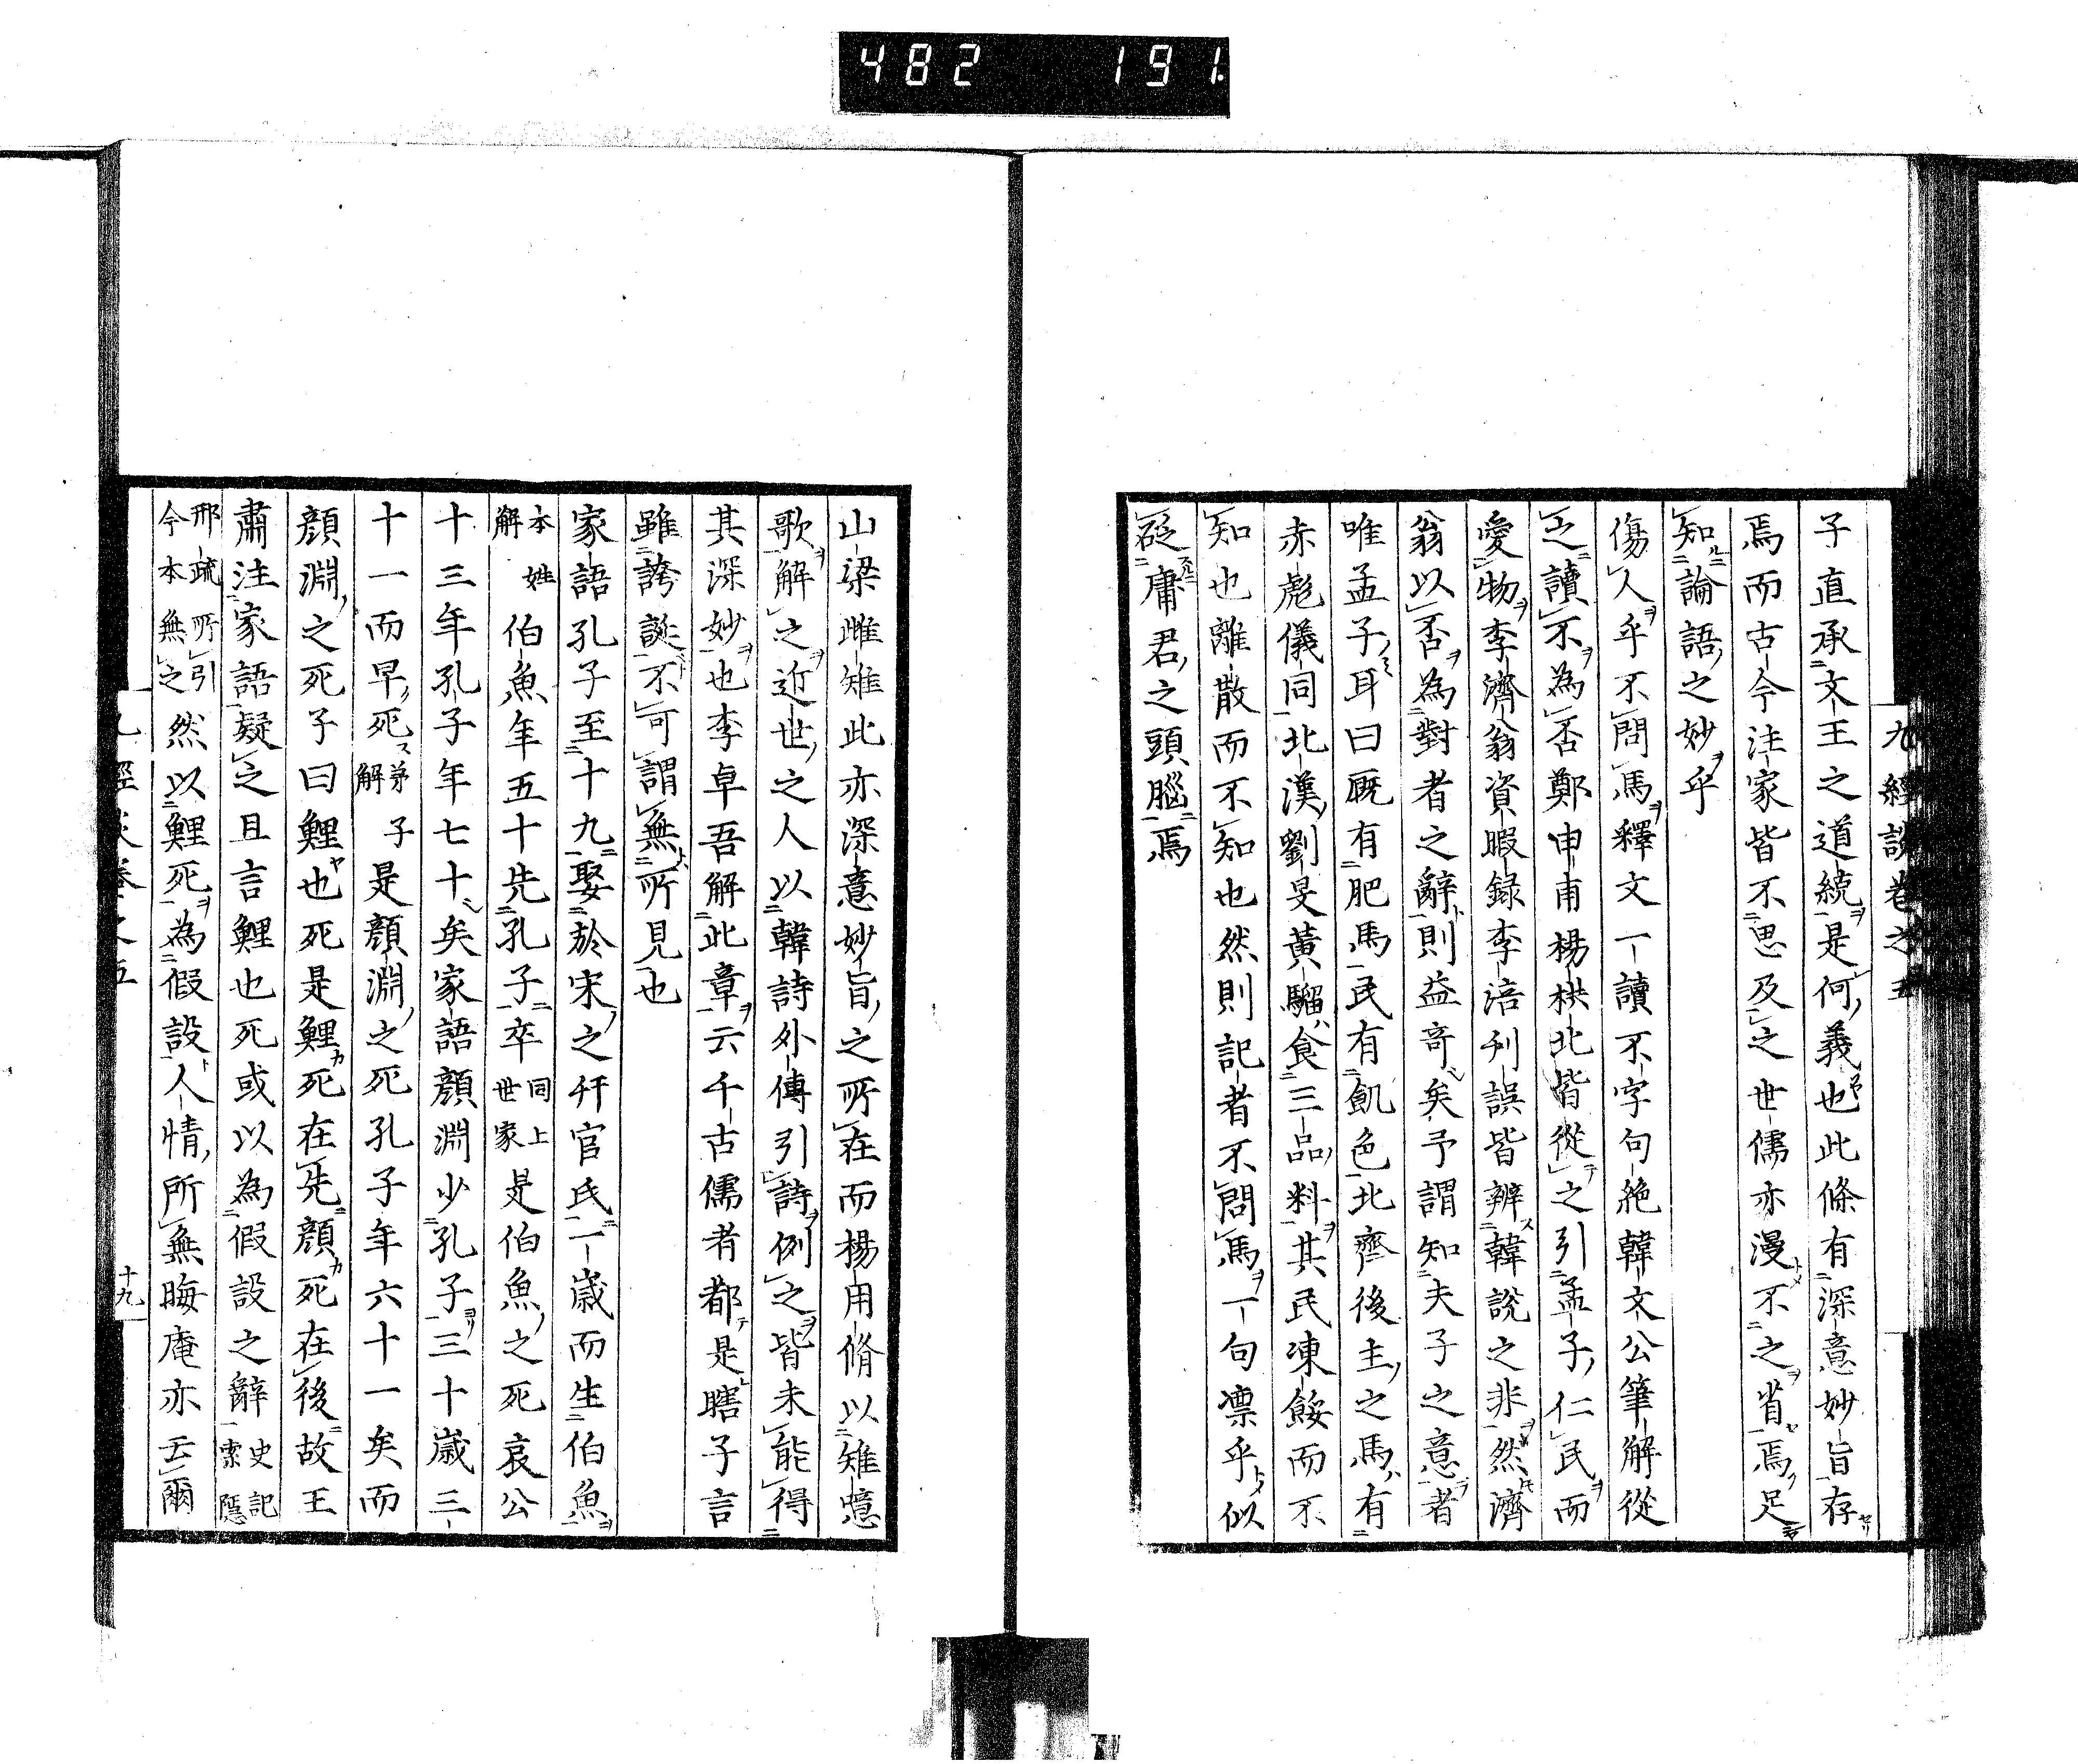 482 191.
九經談卷之五
子直承文王之道統是何義也此條有深意妙旨存
焉而古今注家皆不思及之世儒亦漫不之省焉足
知論語之妙乎
傷人乎不問馬釋文一讀不字句絶韓文公筆解從
之讀不為否鄭申甫楊栱北皆從之引孟子仁民而
愛物李濟翁資暇録李涪刊誤皆辨韓說之非然濟
翁以否為對者之辭則益奇矣予謂知夫子之意者
唯孟子耳曰厩有肥馬民有飢色北齊後主之馬有
赤彪儀同北漢劉旻黃騮食三品料其民凍餒而不
知也離散而不知也然則記者不問馬一句凛乎似
砭庸君之頭腦焉
山梁雌雉此亦深意妙旨之所在而楊用脩以雉噫
歌解之近世之人以韓詩外傳引詩例之皆未能得
其深妙也李卓吾解此章云千古儒者都是瞎子言
雖誇誕不可謂無所見也
家語孔子至十九娶於宋之幵官氏一歲而生伯魚
本姓解伯魚年五十先孔子卒同上世家是伯魚之死哀公
十三年孔子年七十矣家語顏淵少孔子三十歲三
十一而早死弟子解是顏淵之死孔子年六十一矣而
顏淵之死子曰鯉也死是鯉死在先顏死在後故王
肅注家語疑之且言鯉也死或以為假設之辭史記索隱
邢疏所引今本無之然以鯉死為假設人情所無晦庵亦云爾
十九